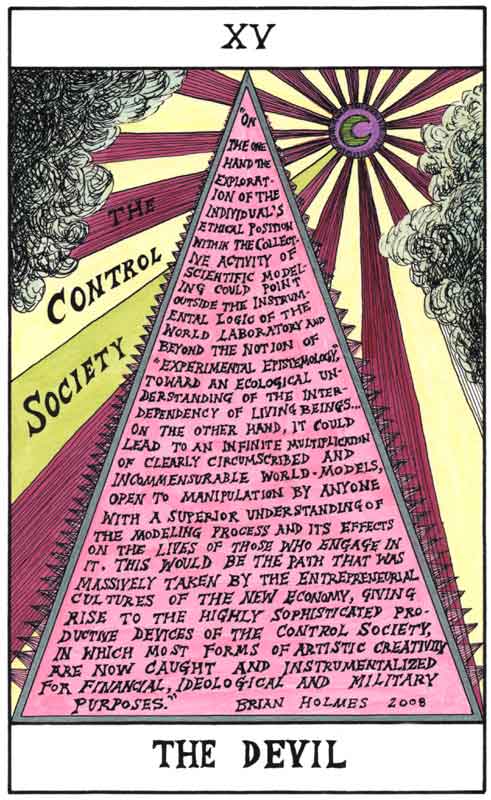 XV
THE
CONTROL
SOCIETY
"ON
THE ONE
HAND THE
EXPLORAT-
ION OF THE
INDIVIDUAL'S
ETHICAL POSITION
WITHIN THE COLLECT-
IVE ACTIVITY OF
SCIENTIFIC MODEL-
ING COULD POINT
OUTSIDE THE INSTRUM-
ENTAL LOGIC OF THE
WORLD LABORATORY AND
BEYOND THE NOTION OF
"EXPERIMENTAL EPISTEMOLOGY,
TOWARD AN ECOLOGICAL UN-
DERSTANDING OF THE INTER-
DEPENDENCY OF LIVING BEINGS...
ON THE OTHER HAND, IT COULD
LEAD TO AN INFINITE MULTIPLICATION
OF CLEARLY CIRCUMSCRIBED AND
INCOMMENSURABLE WORLD-MODELS,
OPEN TO MANIPULATION BY ANYONE
WITH A SUPERIOR UNDERSTANDING OF
THE MODELING PROCESS AND ITS EFFECTS
ON THE LIVES OF THOSE WHO ENGAGE IN
IT. THIS WOULD BE THE PATH THAT WAS
MASSIVELY TAKEN BY THE ENTREPRENEURIAL
CULTURES OF THE NEW ECONOMY, GIVING
RISE TO THE HIGHLY SOPHISTICATED PRO-
DUCTIVE DEVICES OF THE CONTROL SOCIETY,
IN WHICH MOST FORMS OF ARTISTIC CREATIVITY
ARE NOW CAUGHT AND INSTRUMENTALIZED
FOR FINANCIAL, IDEOLOGICAL AND MILITARY
PURPOSES." BRIAN HOLMES 2008
THE DEVIL